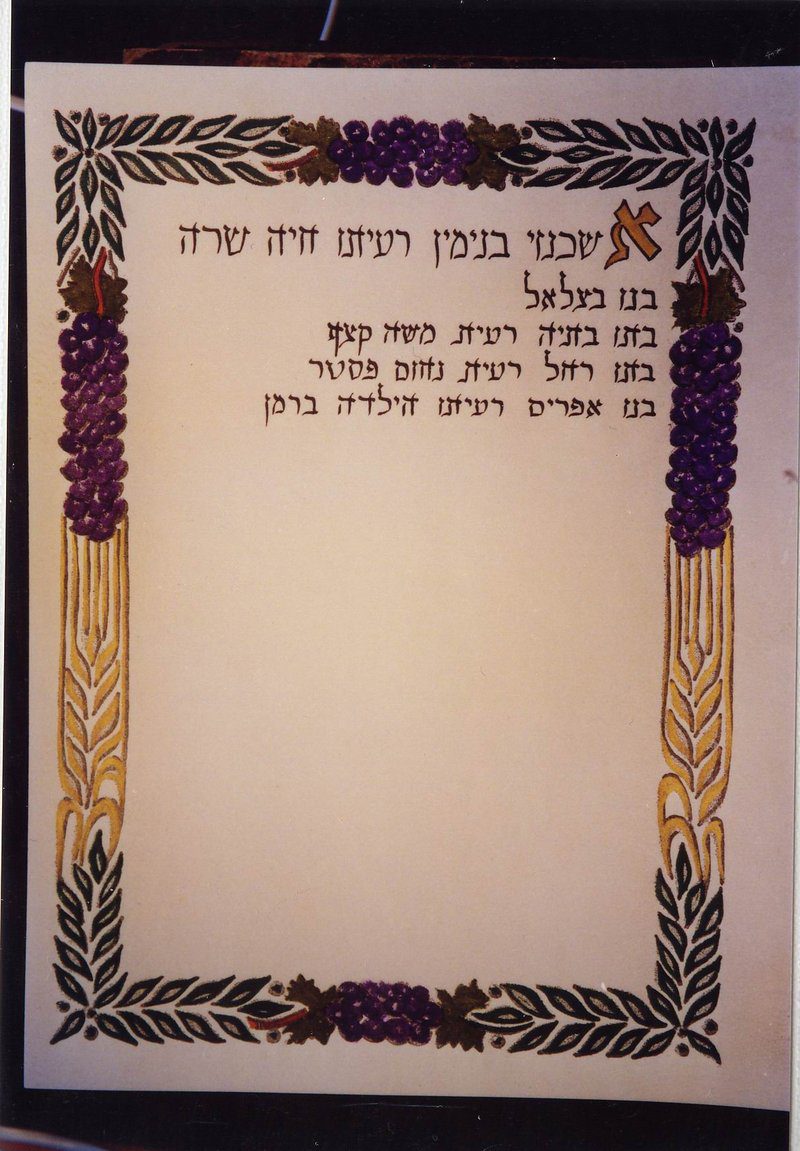 אשכנזי בנימין רעיתו חיה שרה
בנו בצלאל
בתו בתיה רעית משה קצף
בתו רחל רעית נחום פסטר
בנו אפרים רעיתו הילדה ברמן